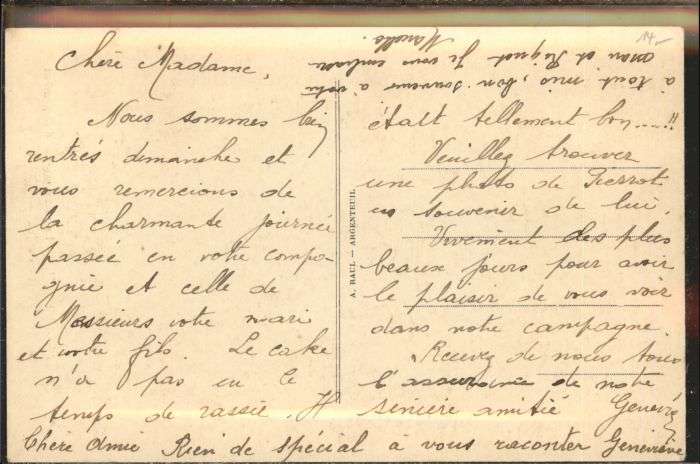 Chère Madame,
Nous sommes bien
rentrés dimanche et
vous remercions de
la charmante journée
passée en votre compa-
gnie et celle de
Messieurs votre mari
et votre fils. Le cake
n'a pas eu le
temps de rassir. Il
était tellement bon.....!!
Veuillez trouver
une photo de Pierrot
en souvenir de lui.
Vivement des plus
beaux jours pour avoir
le plaisir de vous voir
dans notre campagne.
Recevez de nous tous
l'assurance de notre
sincère amitié Geneviève
Chère Amie Rien de spécial à vous raconter Geneviève
à tout mis, bon souvenir à votre
mari et Je vous embrasse
Marcelle.
A. BAUL — ARGENTEUIL
14.-